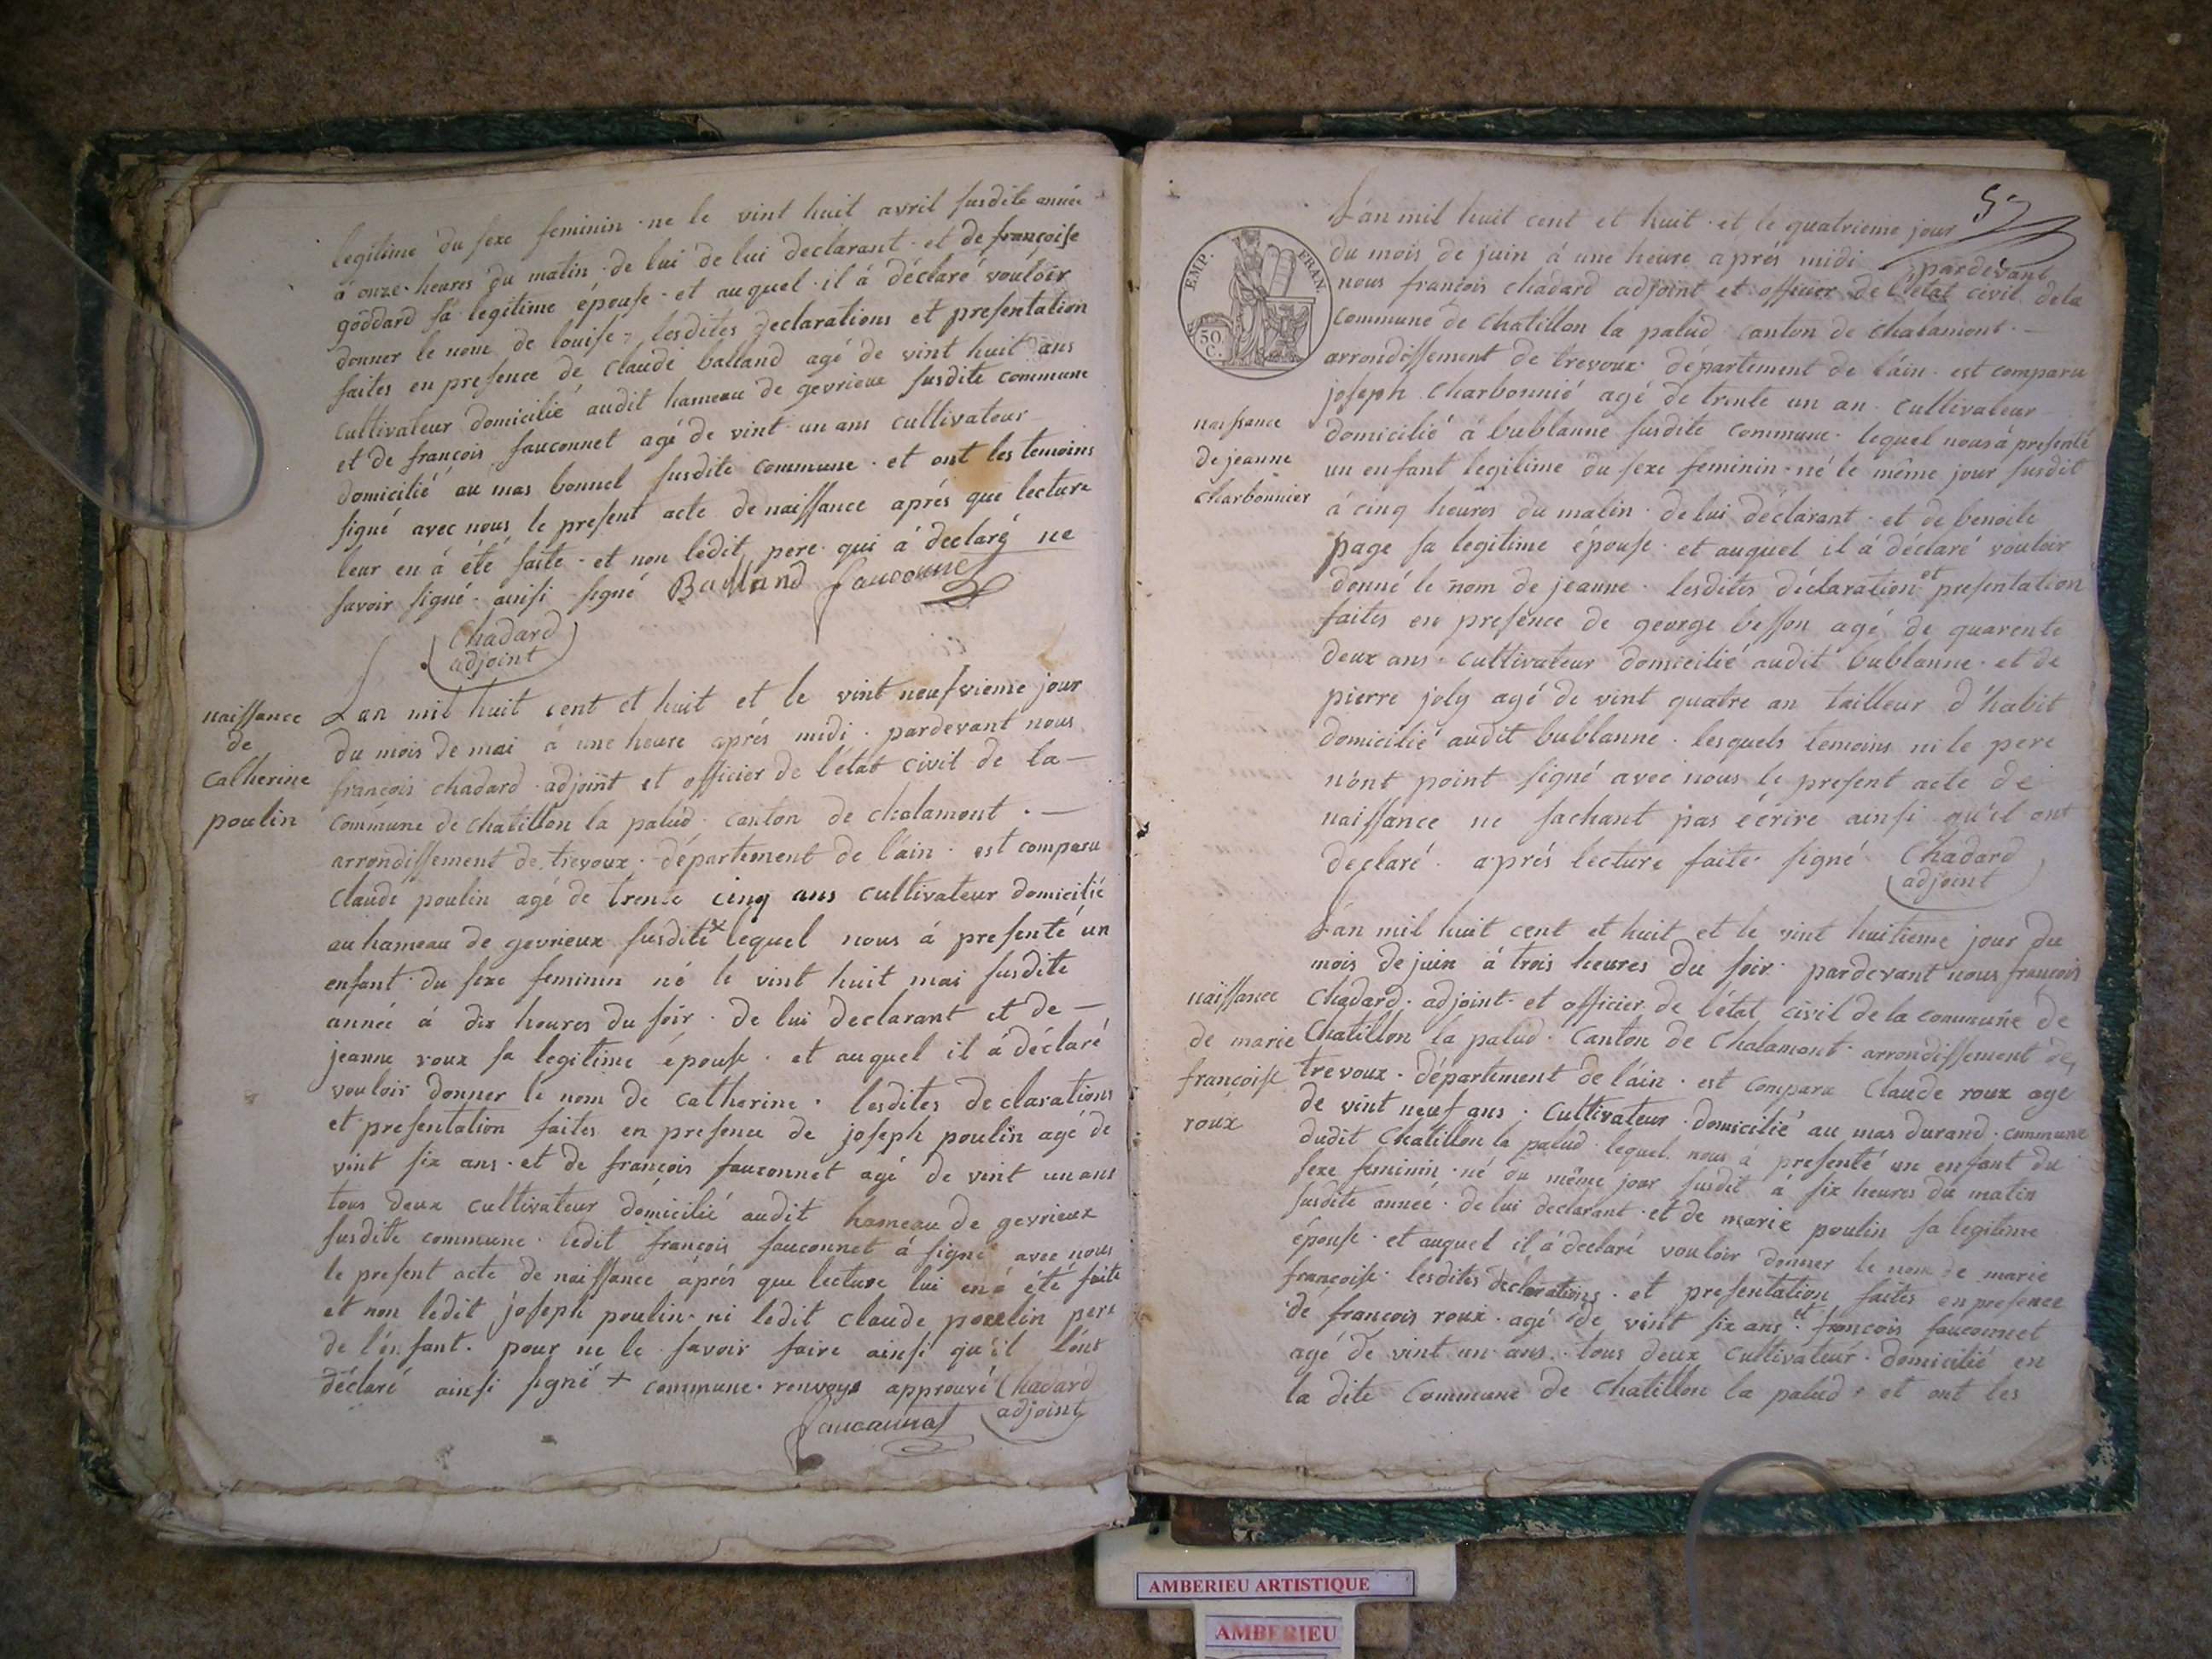 legitime du sexe feminin · ne le vint huit avril susdite année
à onze · heures du matin · de lui de lui declarant · et de françoise
goddard sa legitime épouse · et auquel · il à déclaré vouloir
donner le nom de louise · lesdites declarations et presentation
faites en presence de claude balland agé de vint huit ans
cultivateur domicilié audit hameau de gevrieux susdite commune
et de françois fauconnet agé de vint un ans cultivateur
domicilié au mas bonnel susdite commune · et ont les temoins
signé avec nous le present acte de naissance aprés que lecture
leur en à été faite · et non ledit pere · qui à declaré ne
savoir signé · ainsi signé Balland fauconnet
Chadard
adjoint
naissance
de
Catherine
poulin
L'an mil huit cent et huit et le vint neufvieme jour
du mois de mai à une heure aprés midi · pardevant nous
françois chadard · adjoint et officier de l'état civil de la —
commune de chatillon la palud · canton de chalamont · —
arrondissement de trevoux · département de l'ain · est comparu
Claude poulin agé de trente cinq ans cultivateur domicilié
au hameau de gevrieux susdite + lequel nous à presenté un
enfant du sexe feminin né le vint huit mai susdite
année à dix heures du soir · de lui declarant et de —
jeanne roux sa legitime épouse · et auquel il à déclaré
vouloir donner le nom de catherine · lesdites declarations
et presentation faites en presence de joseph poulin agé de
vint six ans · et de françois fauconnet agé de vint un ans
tous deux cultivateur domicilié audit hameau de gevrieux
susdite commune · ledit françois fauconnet à signé avec nous
le present acte de naissance aprés que lecture lui en à été faite
et non ledit joseph poulin · ni ledit claude poulin pere
de l'enfant · pour ne le savoir faire ainsi qu'il l'ont
déclaré ainsi signé + commune · renvoye approuvé Chadard
adjoint
fauconnet
57
EMP. FRAN.
50
C.
L'an mil huit cent et huit · et le quatrieme jour
du mois de juin à une heure aprés midi pardevant
nous francois chadard adjoint et officier de l'état civil de la
Commune de chatillon la palud · canton de chalamont · —
arrondissement de trevoux · département de l'ain · est comparu
joseph charbonnié agé de trente un an · cultivateur
naissance
de jeanne
charbonnier
domicilié à bublanne susdite commune · lequel nous à presenté
un enfant legitime du sexe feminin · né le même jour susdit
à cinq heures du matin · de lui déclarant · et de benoite
page sa legitime épouse · et auquel il à déclaré vouloir
donné le nom de jeanne · lesdites déclaration et presentation
faites en presence de george besson agé de quarente
deux ans · cultivateur domicilié audit bublanne · et de
pierre joly agé de vint quatre an tailleur d'habit
domicilié audit bublanne · lesquels temoins ni le pere
n'ont point signé avec nous le present acte de
naissance ne sachant pas écrire ainsi qu'il ont
declaré · aprés lecture faite · signé · Chadard
adjoint
L'an mil huit cent et huit et le vint huitieme jour du
mois de juin à trois heures du soir · pardevant nous françois
naissance
de marie
françoise
roux
Chadard · adjoint · et officier de l'état civil de la commune de
Chatillon la palud · Canton de Chalamont · arrondissement de
trevoux · département de l'ain · est comparu Claude roux agé
de vint neuf ans · Cultivateur · domicilié au mas durand · commune
dudit Chatillon la palud · lequel nous à presenté un enfant du
sexe feminin · né du même jour susdit à six heures du matin
susdite année · de lui declarant · et de marie poulin sa legitime
épouse · et auquel il à declaré vouloir donner le nom de marie
françoise · lesdites declarations · et presentation faites en presence
de françois roux · agé de vint six ans · et françois fauconnet
agé de vint un ans · tous deux cultivateur · domicilié en
la dite Commune de chatillon la palud · et ont les
AMBERIEU ARTISTIQUE
AMBERIEU